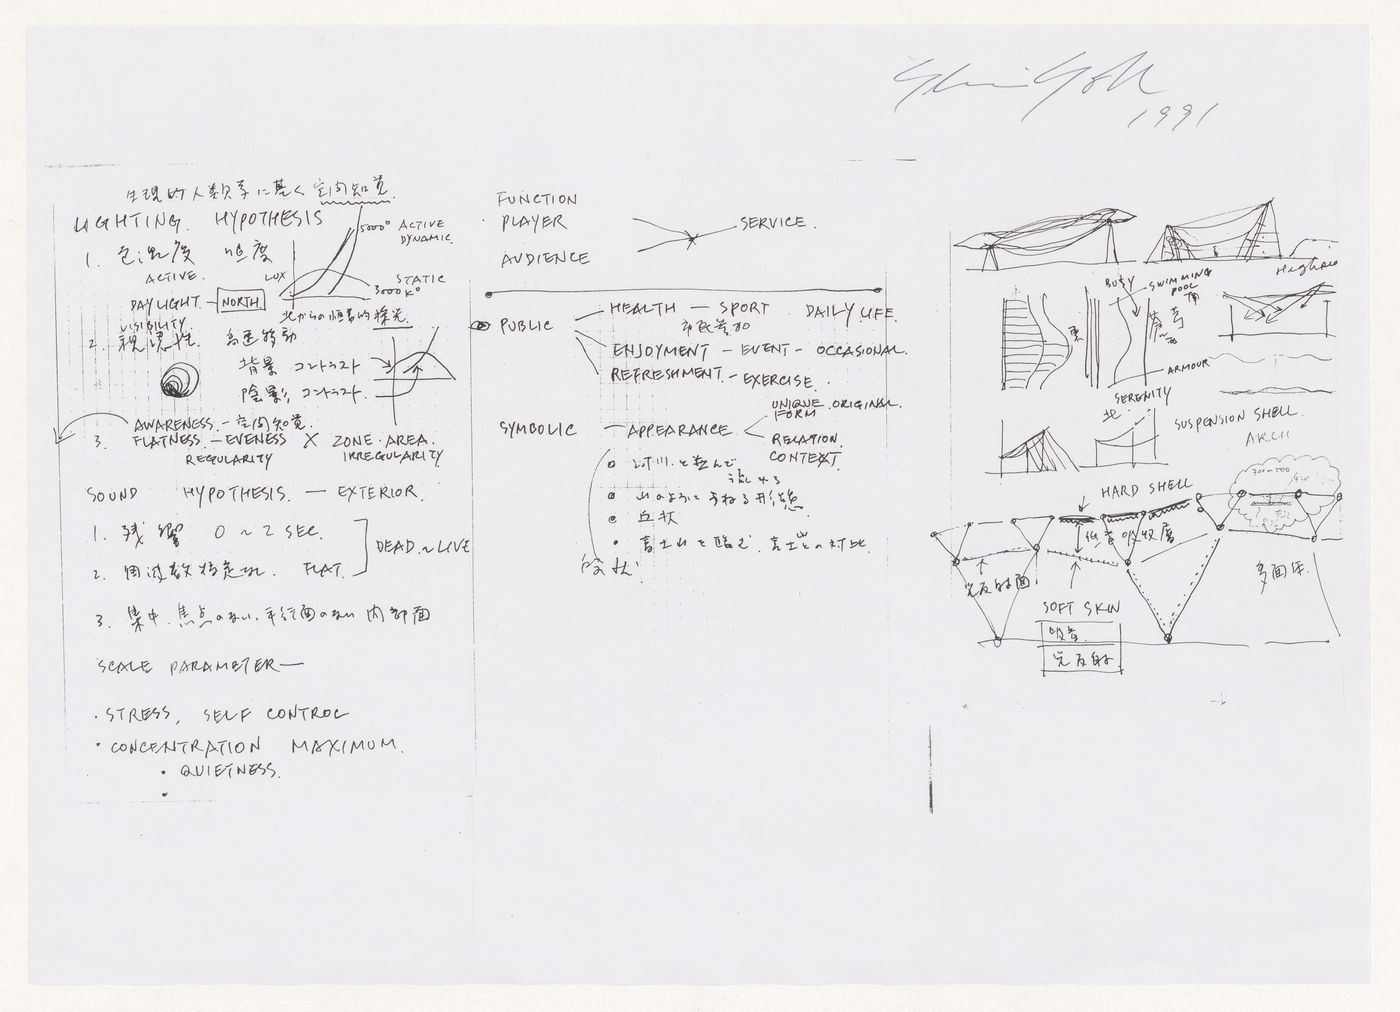 1991
空間知覚
LIGHTING HYPOTHESIS
5000° ACTIVE
DYNAMIC.
1. 色温度 照度
ACTIVE.
LUX
STATIC
3000K°
DAYLIGHT NORTH
北からの恒常的採光
VISIBILITY
2. 視認性. 高速移動
背景 コントラスト
陰影 コントラスト
AWARENESS. - 空間知覚.
3. FLATNESS. - EVENESS X ZONE. AREA.
REGULARITY IRREGULARITY
SOUND HYPOTHESIS. - EXTERIOR.
1. 残響 0 ~ 2 SEC.
DEAD ~ LIVE
2. 周波数特定なし FLAT.
3. 集中. 焦点のない. 平行面のない 内部面
SCALE PARAMETER -
· STRESS, SELF CONTROL
· CONCENTRATION MAXIMUM.
· QUIETNESS.
FUNCTION
PLAYER
SERVICE.
AUDIENCE
PUBLIC
HEALTH - SPORT DAILY LIFE.
市民参加
ENJOYMENT - EVENT - OCCASIONAL.
REFRESHMENT. - EXERCISE.
SYMBOLIC - APPEARANCE
UNIQUE. ORIGINAL.
FORM
RELATION.
CONTEXT.
と並んで
山のようにうねる形態
· 富士山を臨む. 富士山との対比.
BUSY
SWIMMING
POOL
南
東
ARMOUR
SERENITY
北.
SUSPENSION SHELL.
ARCH
HARD SHELL
低音吸収層
光反射面
多面体.
SOFT SKIN
吸音.
光反射